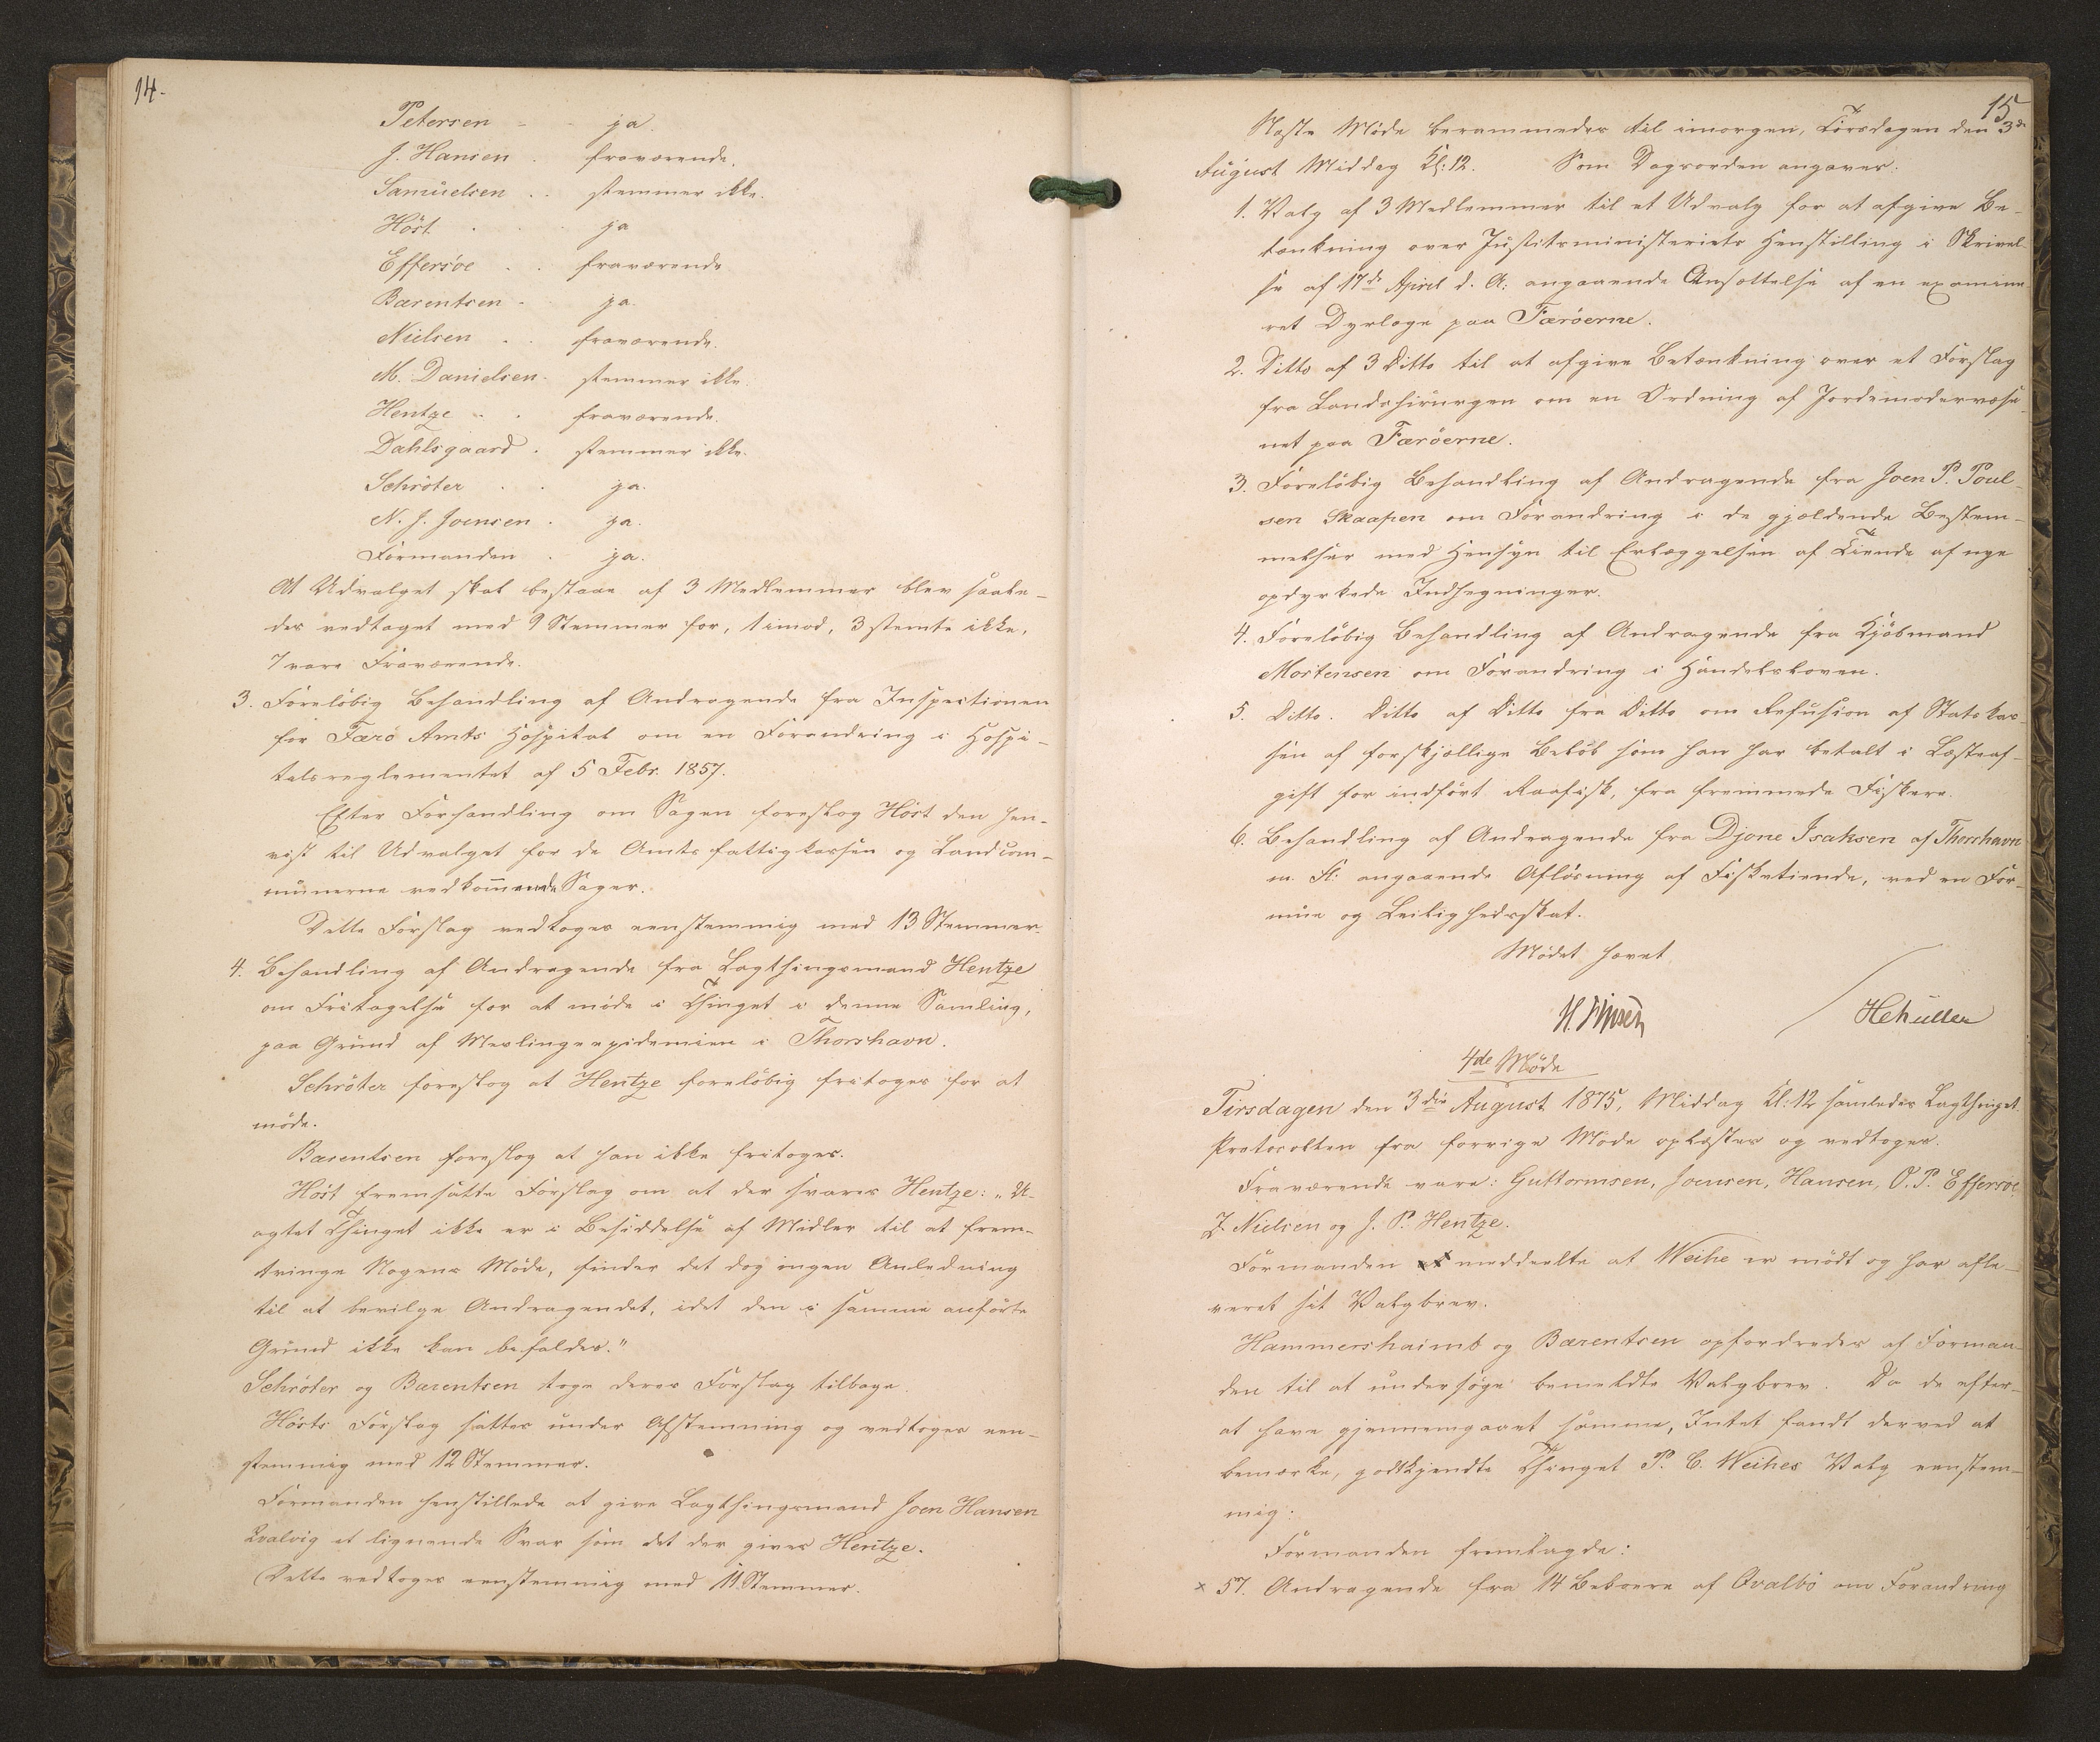 14.
Petersen - - ja.
J. Hansen . fraværende.
Samuelsen . . stemmer ikke.
Höst . . . ja
Effersöe . . fraværende
Bærentsen - ja.
Nielsen . . fraværende.
M. Danielsen. stemmer ikke.
Hentze - . fraværende.
Dahlsgaard . stemmer ikke.
Schröter . . ja.
N. J. Joensen . ja.
Formanden . ja.
At Udvalget skal bestaae af 3 Medlemmer blev saale-
des vedtaget med 9 Stemmer for, 1 imod, 3 stemte ikke,
7 vare Fraværende.
3. Foreløbig Behandling af Andragende fra Inspectionen
for Færö Amts Hospital om en Forandring i Hospi-
talsreglementet af 5 Febr. 1857.
Efter Forhandling om Sagen foreslog Höst den hen-
vist til Udvalget for de Amtsfattigkassen og Landcom-
munerne vedkommende Sager.
Dette Forslag vedtoges eenstemmig med 13 Stemmer.
4. Behandling af Andragende fra Lagthingsmand Hentze
om Fritagelse for at møde i Thinget i denne Samling,
paa Grund af Meslingeepidemien i Thorshavn.
Schröter foreslog at Hentze foreløbig fritoges for at
møde.
Bærentsen foreslog at han ikke fritoges.
Höst fremsatte Forslag om at der svares Hentze: „U-
agtet Thinget ikke er i Besiddelse af Midler til at frem-
tvinge Nogens Møde, finder det dog ingen Anledning
til at bevilge Andragendet, idet den i samme anførte
Grund ikke kan befoldes."
Schröter og Bærentsen toge deres Forslag tilbage.
Hösts Forslag sattes under Afstemning og vedtoges een-
stemmig med 12 Stemmer.
Formanden henstillede at give Lagthingsmand Joen Hansen
Qvalvig et lignende Svar som det der gives Hentze.
Dette vedtoges eenstemmig med 11 Stemmer.
15
Næste Møde berammedes til imorgen, Tirsdagen den 3de
August Middag Kl: 12. Som Dagsorden angaves:
1. Valg af 3 Medlemmer til et Udvalg for at afgive Be-
tænkning over Justitsministeriets Henstilling i Skrivel-
se af 17de April d. A: angaaende Ansættelse af en examine-
ret Dyrlæge paa Færöerne.
2. Ditto af 3 Ditto til at afgive Betænkning over et Forslag
fra Landchirurgen om en Ordning af Jordemodervæse-
net paa Færöerne.
3. Foreløbig Behandling af Andragende fra Joen P. Poul-
sen Skaapen om Forandring i de gjældende Bestem-
melser med Hensyn til Erlæggelsen af Tiende af nye
opdyrkede Indhegninger.
4. Foreløbig Behandling af Andragende fra Kjøbmand
Mortensen om Forandring i Handelsloven.
5. Ditto. Ditto af Ditto fra Ditto om Refusion af Statskas-
sen af forskjellige Beløb som han har betalt i Læsteaf-
gift for indført Raafisk, fra fremmede Fiskere.
6. Behandling af Andragende fra Djone Isaksen af Thorshavn
m. Fl: angaaende Afløsning af Fisketiende, ved en For-
mue og Leilighedsskat.
Mødet hævet
HMüller
4de Møde
Tirsdagen den 3die August 1875, Middag Kl: 12 samledes Lagthinget.
Protocollen fra forrige Møde oplæstes og vedtoges.
Fraværende vare: Guttormsen, Joensen, Hansen, O. P. Effersöe
Z. Nielsen og J. P. Hentze.
Formanden meddeelte at Weihe er mødt og har afle-
veret sit Valgbrev.
Hammershaimb og Bærentsen opfordredes af Forman-
den til at undersøge bemeldte Valgbrev. Da de efter
at have gjennemgaaet samme, Intet fandt derved at
bemærke, godkjendte Thinget P. C. Weihes Valg eenstem-
mig:
Formanden fremlagde:
x 57. Andragende fra 14 Beboere af Qvalbö om Forandring